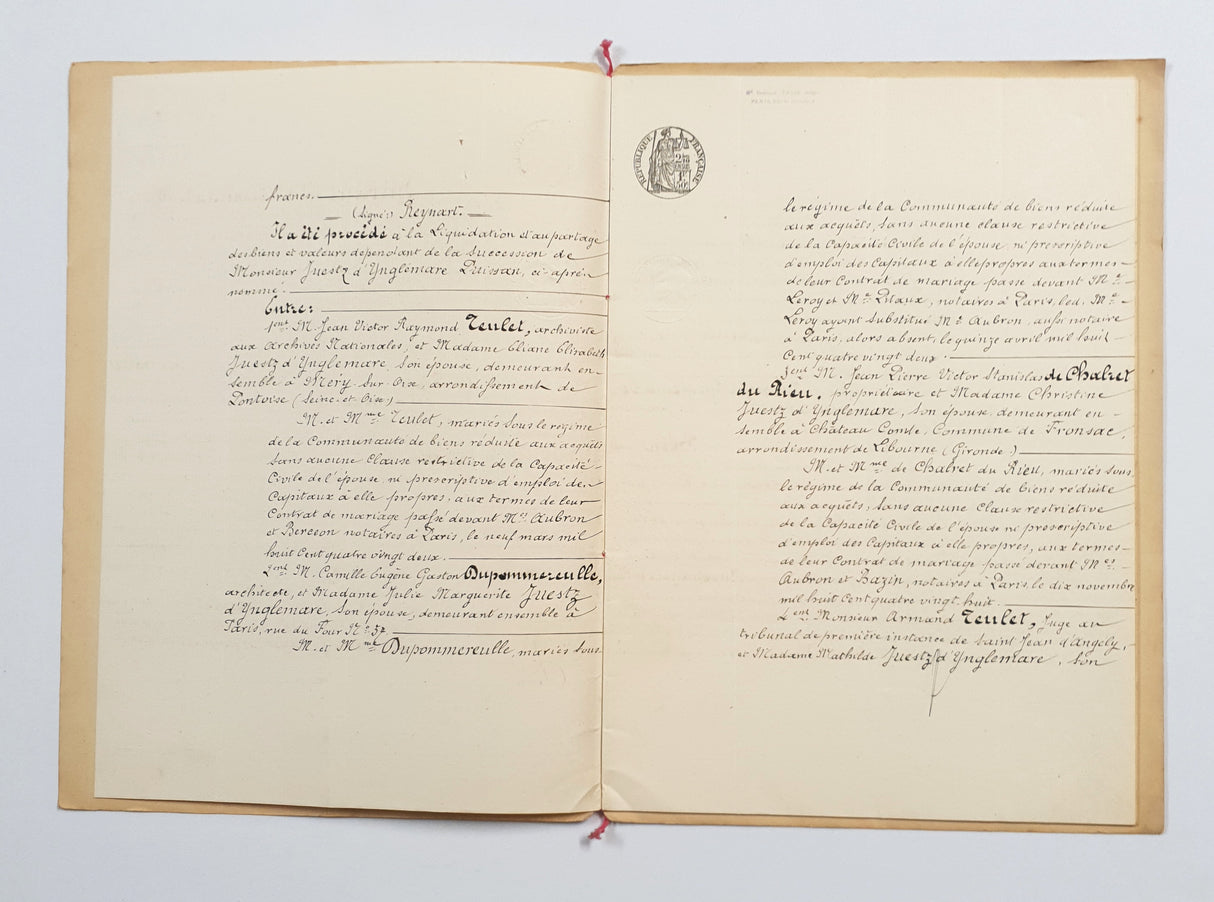 francs.
(Signé:) Reynart.
Il a été procédé à la Liquidation et au partage
des biens et valeurs dépendant de la Succession de
Monsieur Juestz d'Ynglemare Puissan, ci-après
nommé.
Entre:
1ent M. Jean Victor Raymond Teulet, archiviste
aux Archives Nationales, et Madame Eliane Elisabeth
Juestz d'Ynglemare, Son épouse, demeurant en-
semble à Mery-Sur-Oise, arrondissement de
Pontoise (Seine-et-Oise)
M. et Mme Teulet, mariés sous le régime
de la Communauté de biens réduite aux acquêts
sans aucune Clause restrictive de la Capacité
Civile de l'épouse, ni prescriptive d'emploi des
Capitaux à elle propres, aux termes de leur
Contrat de mariage passé devant Mes Aubron
et Berceon notaires à Paris, le neuf mars mil
huit Cent quatre vingt deux.
2ent M. Camille Eugène Gaston Dupommereulle,
architecte, et Madame Julie Marguerite Juestz
d'Ynglemare, Son épouse, demeurant ensemble à
Paris, rue du Four No 57.
M. et Mme Dupommereulle, mariés sous
RÉPUBLIQUE FRANÇAISE
le régime de la Communauté de biens réduite
aux acquêts, sans aucune clause restrictive
de la Capacité Civile de l'épouse, ni prescriptive
d'emploi des Capitaux à elle propres aux termes
de leur Contrat de mariage passé devant Me
Leroy et Me Pitaux, notaires à Paris, led. Me
Leroy ayant substitué Me Aubron, aussi notaire
à Paris, alors absent, le quinze avril mil huit
Cent quatre vingt deux.
3ent M. Jean Pierre Victor Stanislas de Chalret
du Rieu, propriétaire et Madame Christine
Juestz d'Ynglemare, Son épouse, demeurant en-
semble à Château Comte, Commune de Fronsac,
arrondissement de Libourne (Gironde)
M. et Mme de Chalret du Rieu, mariés sous
le régime de la Communauté de biens réduite
aux acquêts, sans aucune Clause restrictive
de la Capacité Civile de l'épouse ni prescriptive
d'emploi des Capitaux à elle propres, aux termes
de leur Contrat de mariage passé devant Mes
Aubron et Bazin, notaires à Paris, le dix novembre
mil huit Cent quatre vingt-huit.
4ent Monsieur Armand Teulet, Juge au
tribunal de première instance de Saint Jean d'Angely,
et Madame Mathilde Juestz d'Ynglemare, son